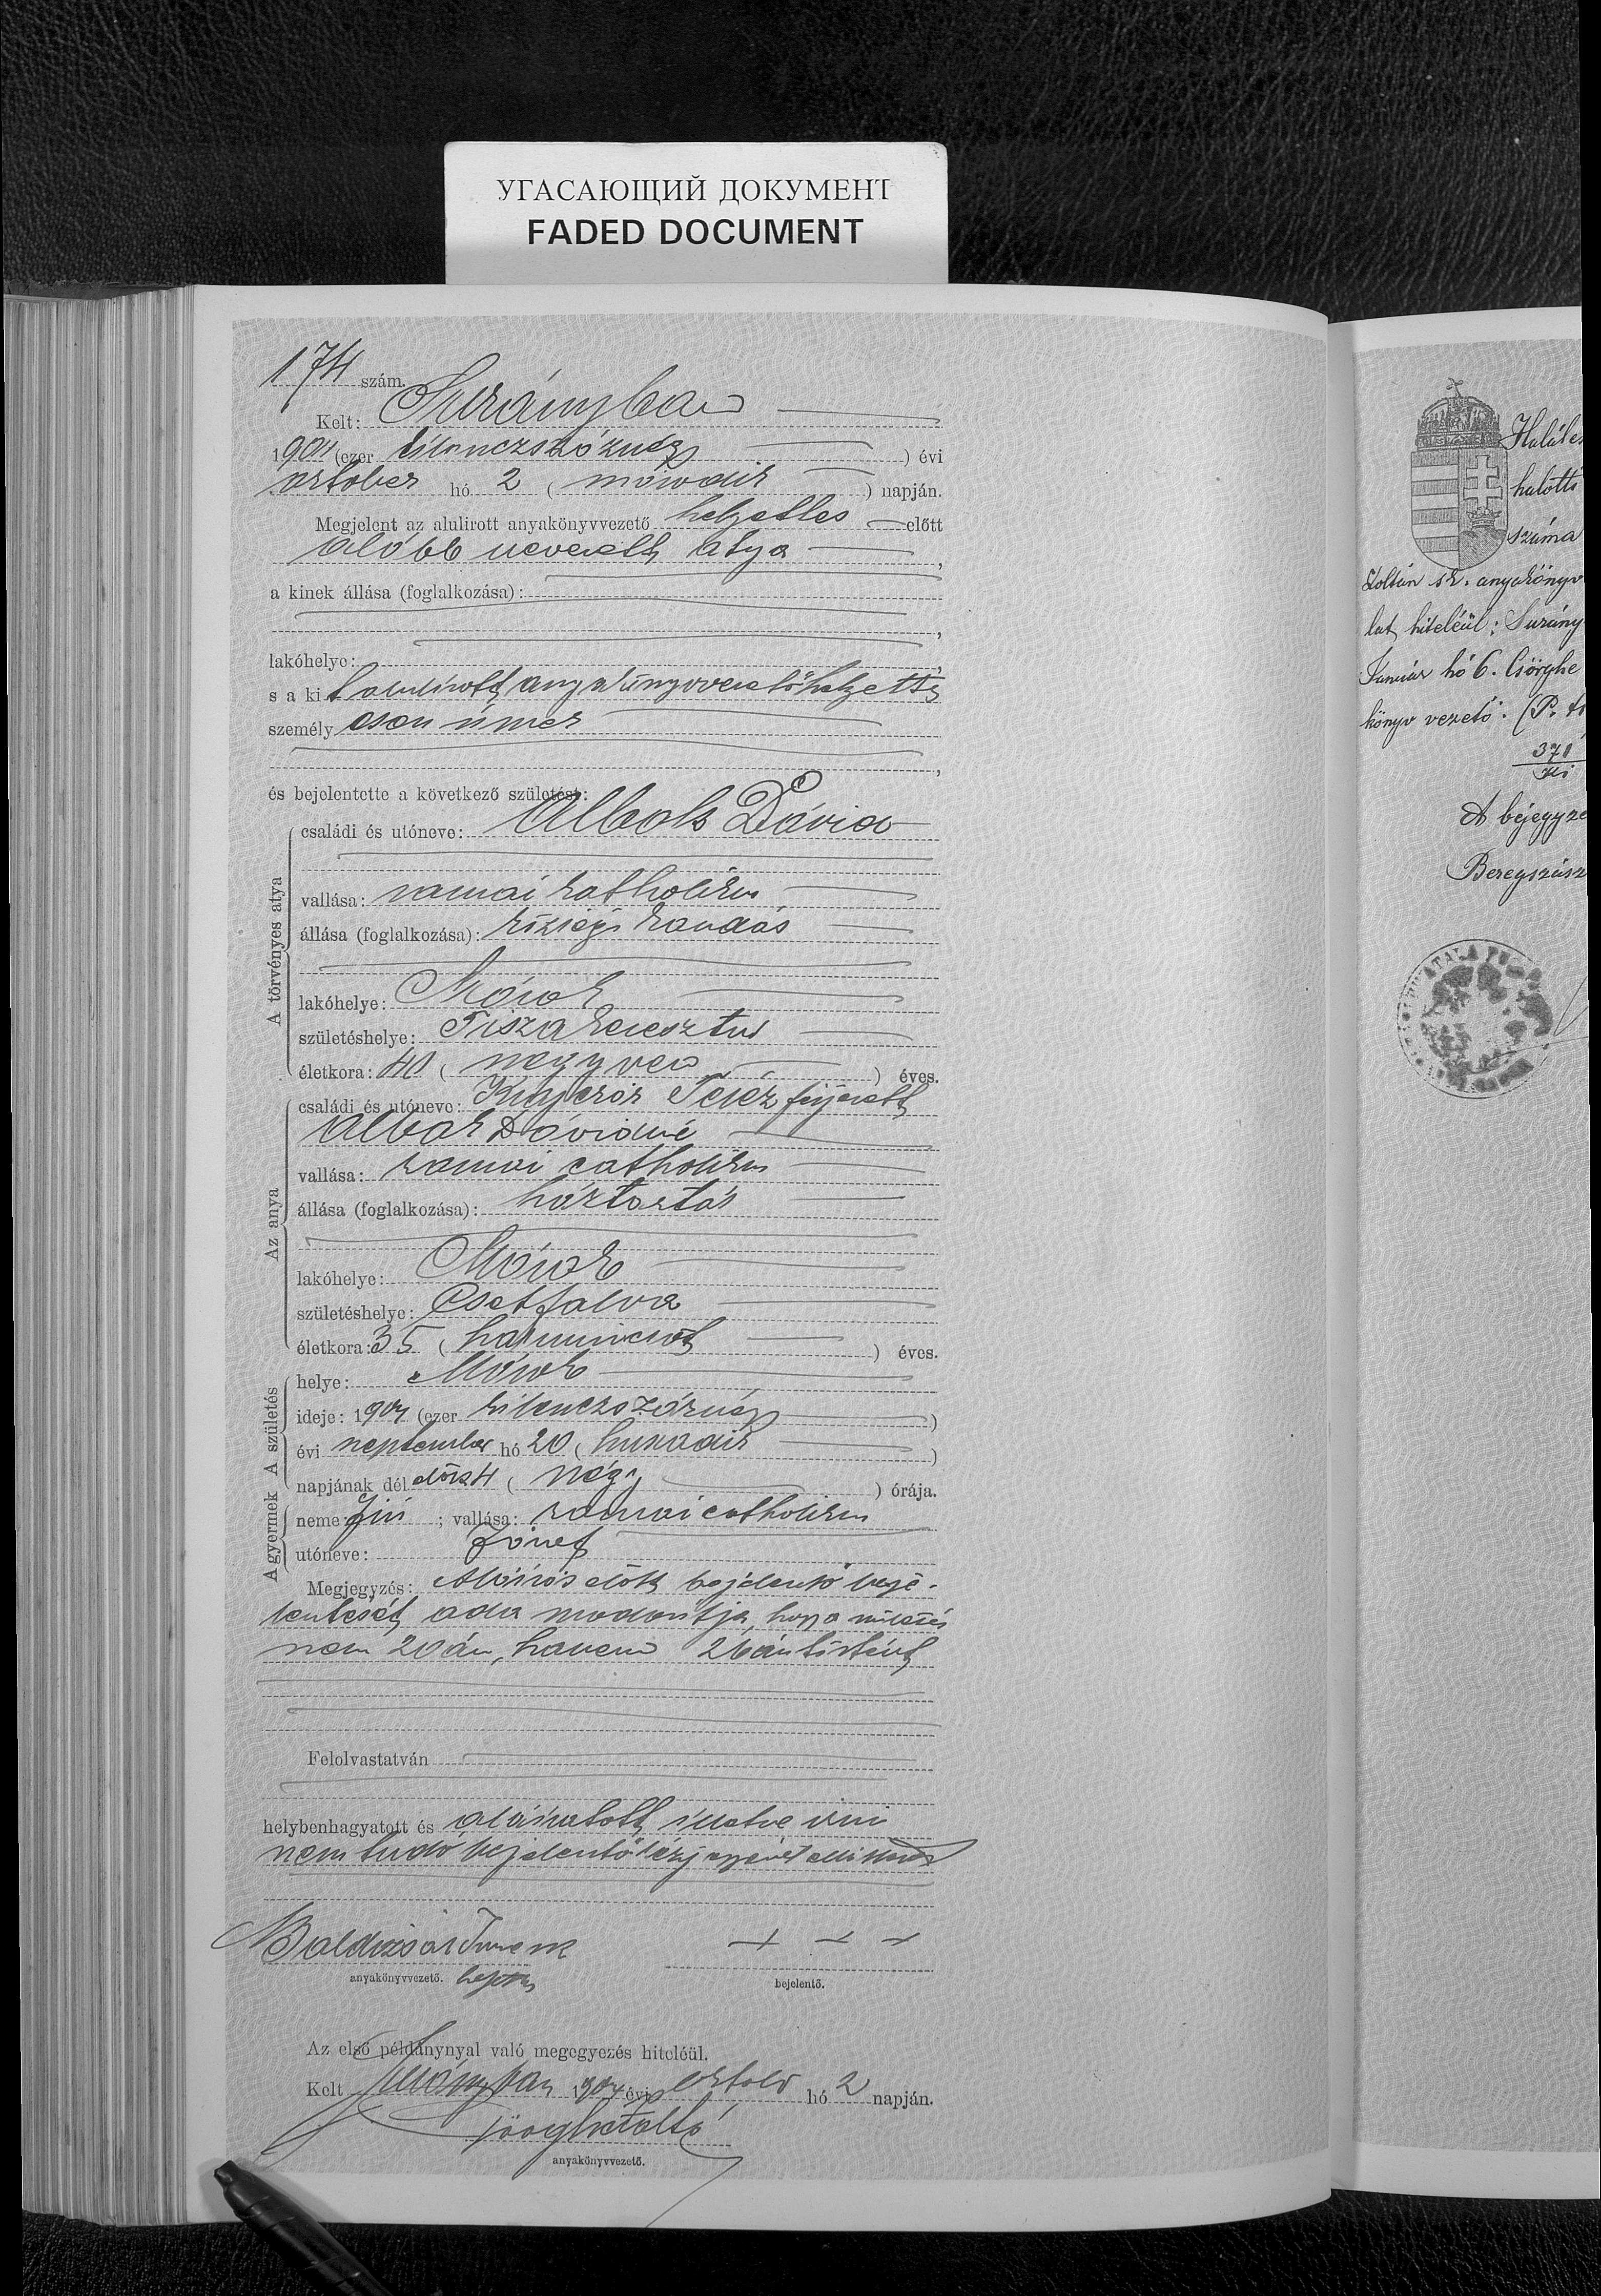 УГАСАЮЩИЙ ДОКУМЕНТ
FADED DOCUMENT
174 szám.
Kelt: Surányban
1904 (ezer kilenczszáznégy) évi
október hó 2 (második) napján.
Megjelent az alulirott anyakönyvvezető helyettes előtt
alább nevezett atya,
a kinek állása (foglalkozása):
lakóhelye:
s a kit alulírott anyakönyvvezetőhelyettes
személyesen ismer
és bejelentette a következő születést:
A törvényes atya
családi és utóneve: Albok Dávid
vallása: római katholikus
állása (foglalkozása): községi kondás
lakóhelye:
születéshelye: Tiszakeresztur
életkora: 40 (negyven) éves.
Az anya
családi és utóneve: Teréz férjezett
Albok Dávidné
vallása: római catholikus
állása (foglalkozása): háztartás
lakóhelye:
születéshelye: Csetfalva
életkora: 35 (harminczöt) éves.
A születés
helye:
ideje: 1904 (ezer kilenczszáznégy)
évi september hó 20 (huszadik)
napjának dél előtt 4 (négy) órája.
A gyermek
neme: fiú; vallása: római catholikus
utóneve: József
Megjegyzés: Aláírás előtt bejelentő beje-
lentését oda módosítja, hogy a születés
nem 20 án, hanem 26 án történt
Felolvastatván
helybenhagyatott és aláíratott illetve írni
nem tudó bejelentő kézjegyével ellátta
Baldizsár
anyakönyvvezető. helyettes
+ + +
bejelentő.
Az első példánynyal való megegyezés hiteléül.
Kelt Surányban 1904 évi október hó 2 napján.
anyakönyvvezető.
Haláles
halotti
száma
Zoltán sk. anyakönyv
lat hiteléül: Surány
Január hó 6. Csörghe
könyv vezető. (P.
371
A béjegyze
Beregszász